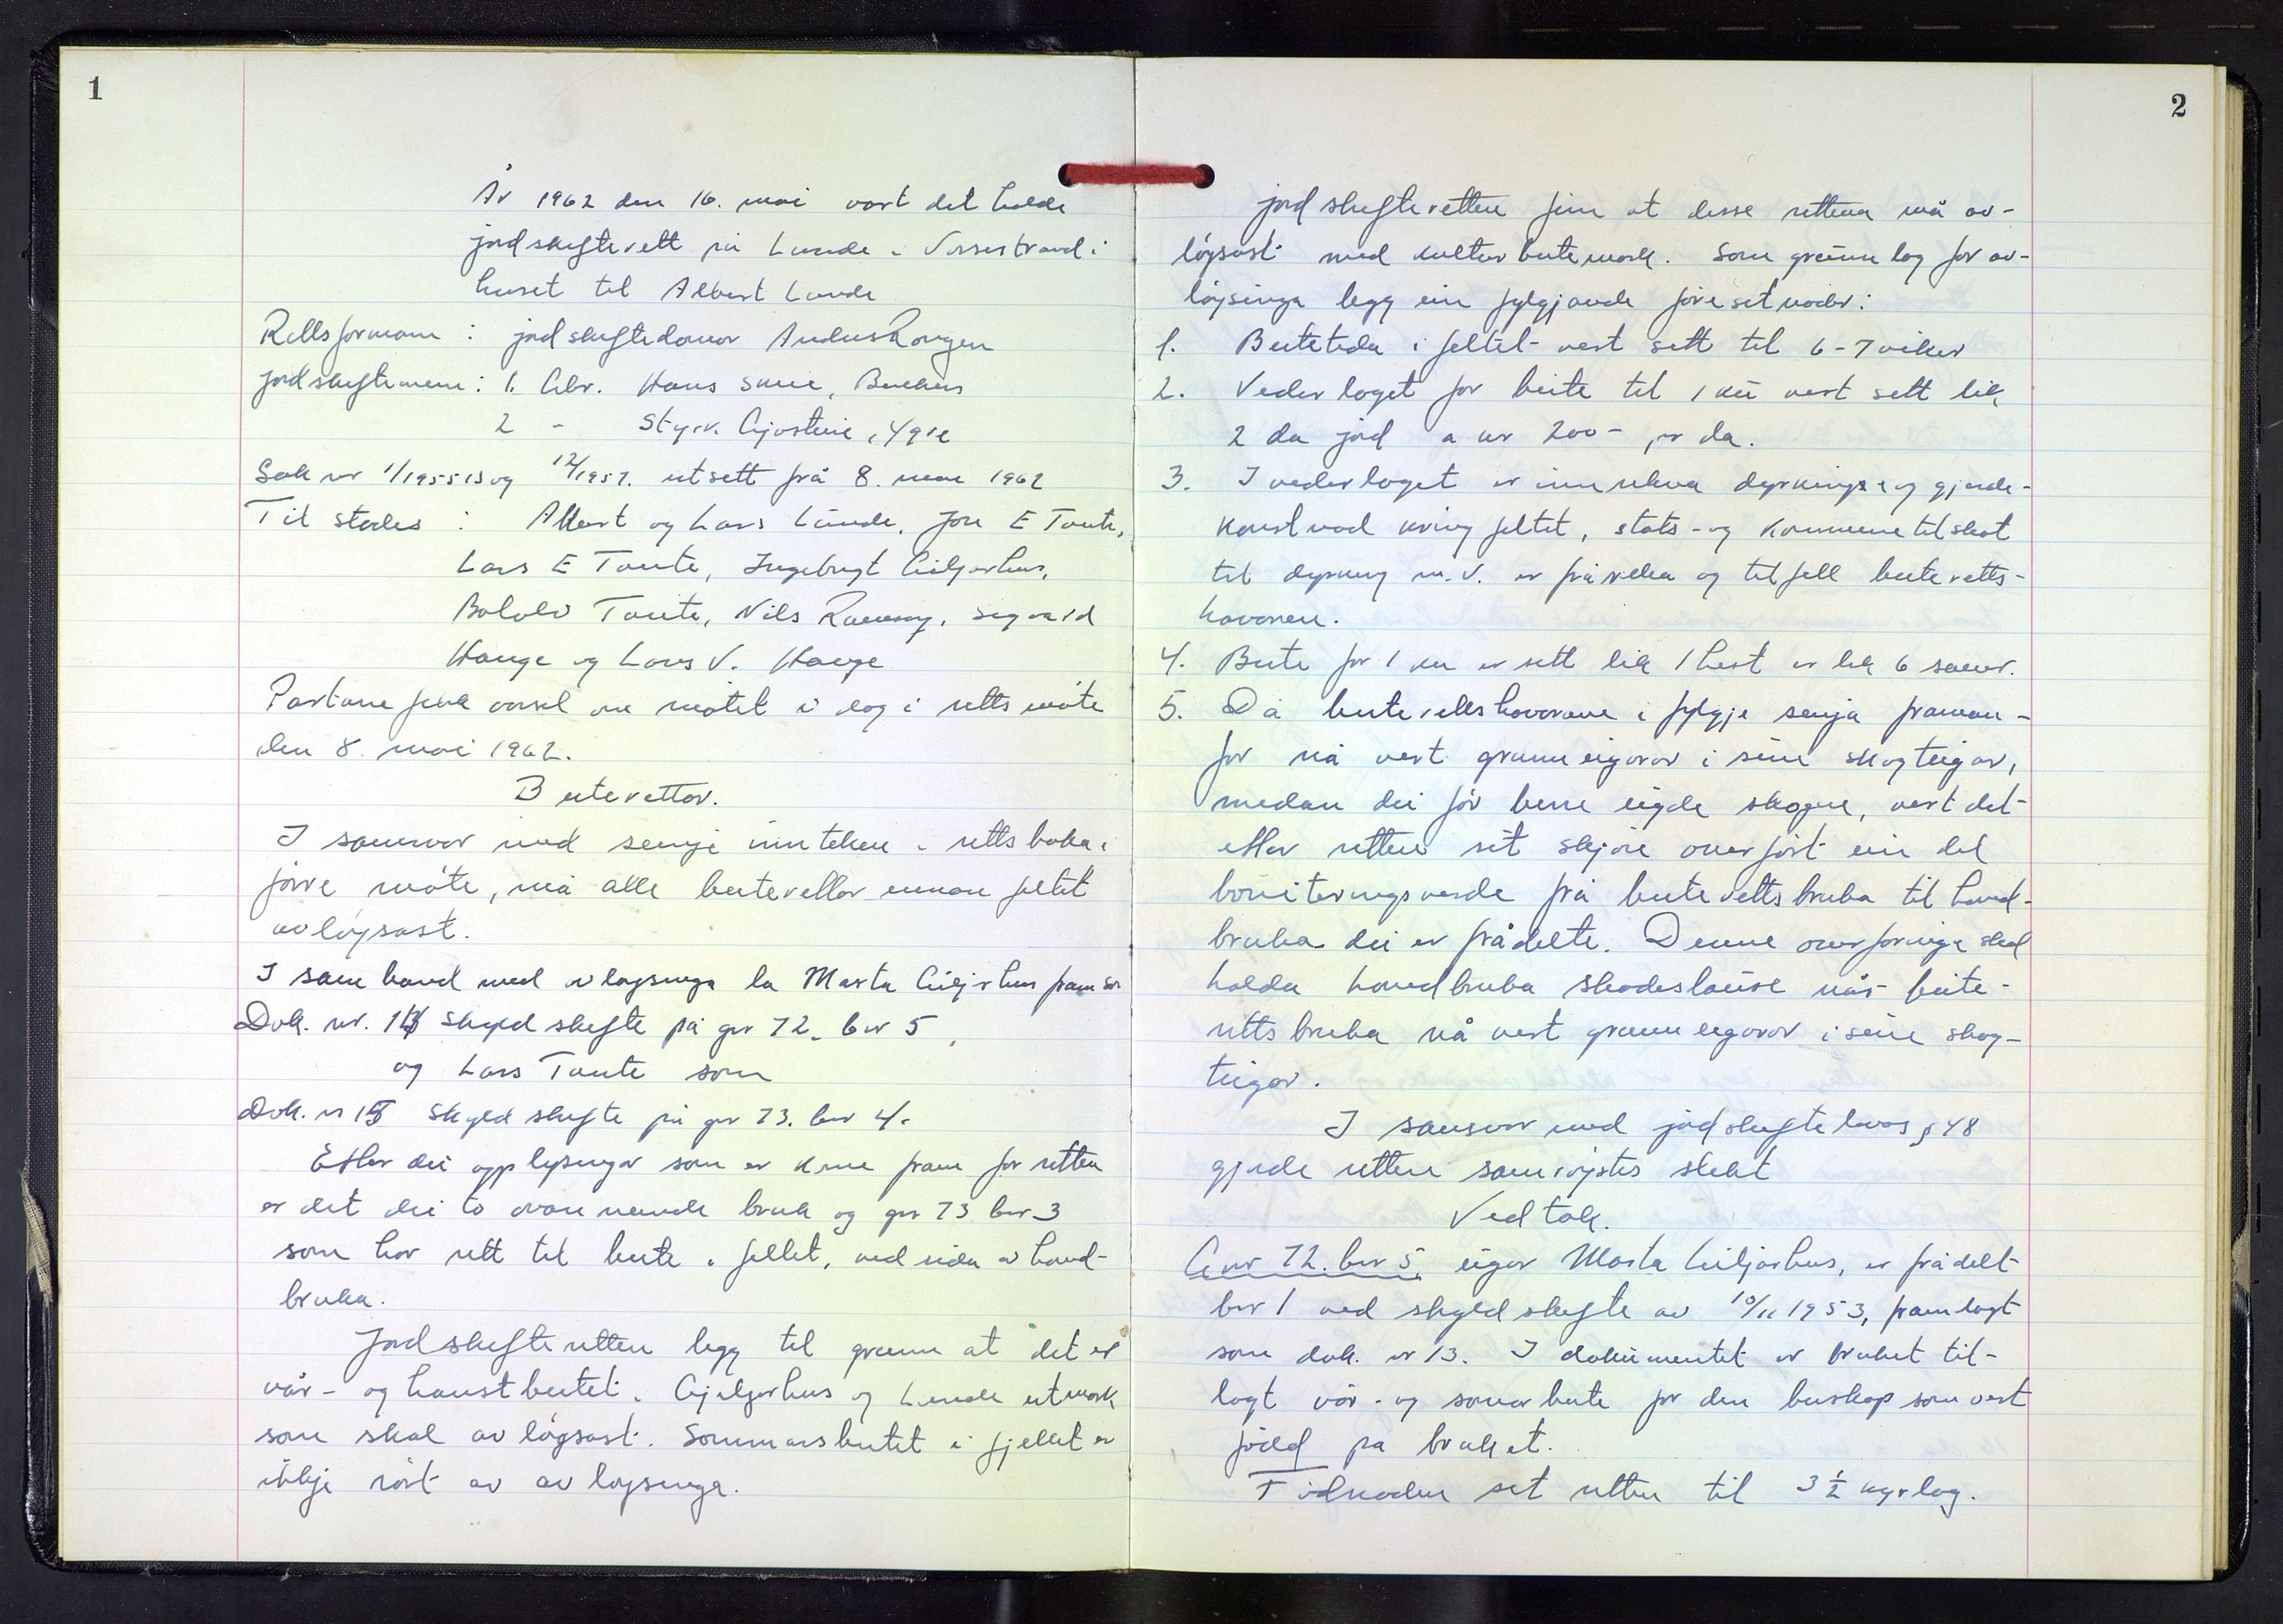 1
År 1962 den 16. mai vart det halde
jordskifterett på Lunde i Vossestrand i
huset til Albert Lunde
Rettsformann : jordskiftedomar Anders Rongen
Jordskiftemenn : 1. Gbr. Hans Smie,
2 - Styrk. Gjosteine,
Sak nr 1/1955 B og 12/1957. utsett frå 8. mai 1962
Til stades : Albert og Lars Lunde, Jon E Tunte,
Lars E Tunte, Ingebrigt Giljarhus,
Botolv Tunte, Nils Rømmog, Sigvald
Hauge og Lars V. Hauge
Partane fekk varsel om møtet i dag i rettsmøte
den 8. mai 1962.
Beiterettar.
I samsvar med semje innteken i rettsboka i
førre møte, må alle beiterettar innan feltet
avløysast.
I samband med avløysinga la Marta Giljarhus fram som
Dok. nr. 13 Skyldskifte på gnr 72. bnr 5,
og Lars Tunte som
Dok. nr 15 Skyldskifte på gnr 73. bnr 4.
Etter dei opplysingar som er kome fram for retten
er det dei to ovannemnde bruk og gnr 73 bnr 3
som har rett til beite i feltet, ved sida av hovud-
bruka.
Jordskifteretten legg til grunn at det er
vår- og haustbeitet i Giljarhus og Lunde utmark
som skal avløysast. Sommarsbeitet i fjellet er
ikkje rørt av avløysinga.
2
Jordskifteretten finn at desse rettane må av-
løysast med kulturbeitemark. Som grunnlag for av-
løysinga legg ein fylgjande føresetnader:
1. Beitetida i feltet vert sett til 6-7 veker
2. Vederlaget for beite til 1 ku vert sett lik
2 da jord a kr 200- pr da.
3. I vederlaget er innrekna dyrkings- og gjerde-
kostnad kring feltet, stats- og kommunetilskot
til dyrking m.v. er fråreikna og tilfell beiteretts-
havaren.
4. Beite for 1 ku er sett lik 1 hest er lik 6 sauer.
5. Då beiterettshavarane i fylgje semja framan-
for nå vert grunneigarar i sine skogteigar,
medan dei før berre eigde skogen, vert det
etter retten sit skjøn overført ein del
boniteringsverde frå beiterettsbruka til hovud-
bruka dei er frådelte. Denne overføringa skal
halda hovudbruka skadeslause når beite-
rettsbruka nå vert grunneigarar i sine skog-
teigar.
I samsvar med jordskiftelova § 48
gjorde retten samrøystes slikt
Vedtak.
Gnr 72. bnr 5, eigar Marta Giljarhus, er frådelt
bnr 1 ved skyldskifte av 10/11 1953, framlagt
som dok. nr 13. I dokumentet er bruket til-
lagt vår- og sumarbeite for den buskap som vert
fødd på bruket.
Fødnaden set retten til 3 1/2 kyrlag.